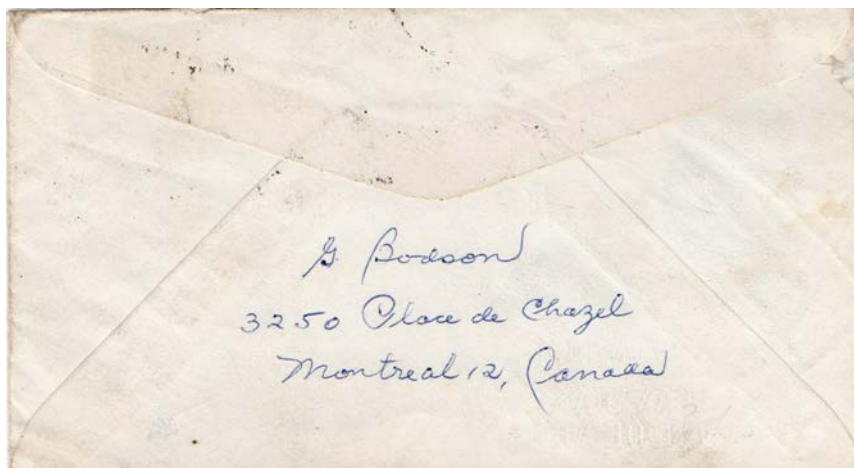 G Bodson
3250 Place de Chazel
Montreal 12, Canada